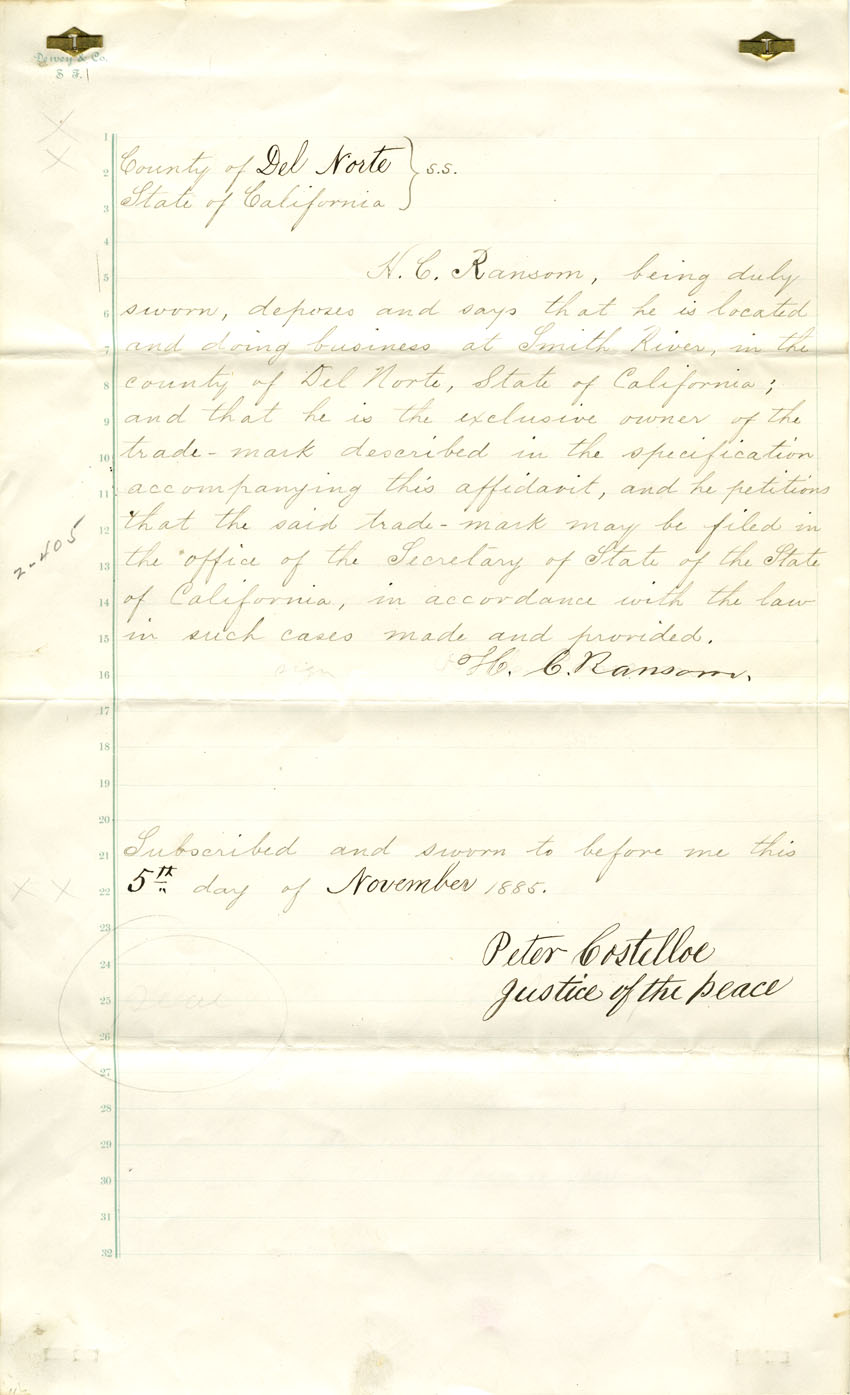 Dewey & Co.
S. F.
1
2 County of Del Norte } s.s.
3 State of California
4
5 H. C. Ransom, being duly
6 sworn, deposes and says that he is located
7 and doing business at Smith River, in the
8 county of Del Norte, State of California;
9 and that he is the exclusive owner of the
10 trade-mark described in the specification
11 accompanying this affidavit, and he petitions
12 that the said trade-mark may be filed in
2-405
13 the office of the Secretary of State of the State
14 of California, in accordance with the law
15 in such cases made and provided.
16 sign H. C. Ransom.
17
18
19
20
21 Subscribed and sworn to before me this
22 5th day of November 1885.
23
24 Peter Costelloe
25 Seal Justice of the peace
26
27
28
29
30
31
32